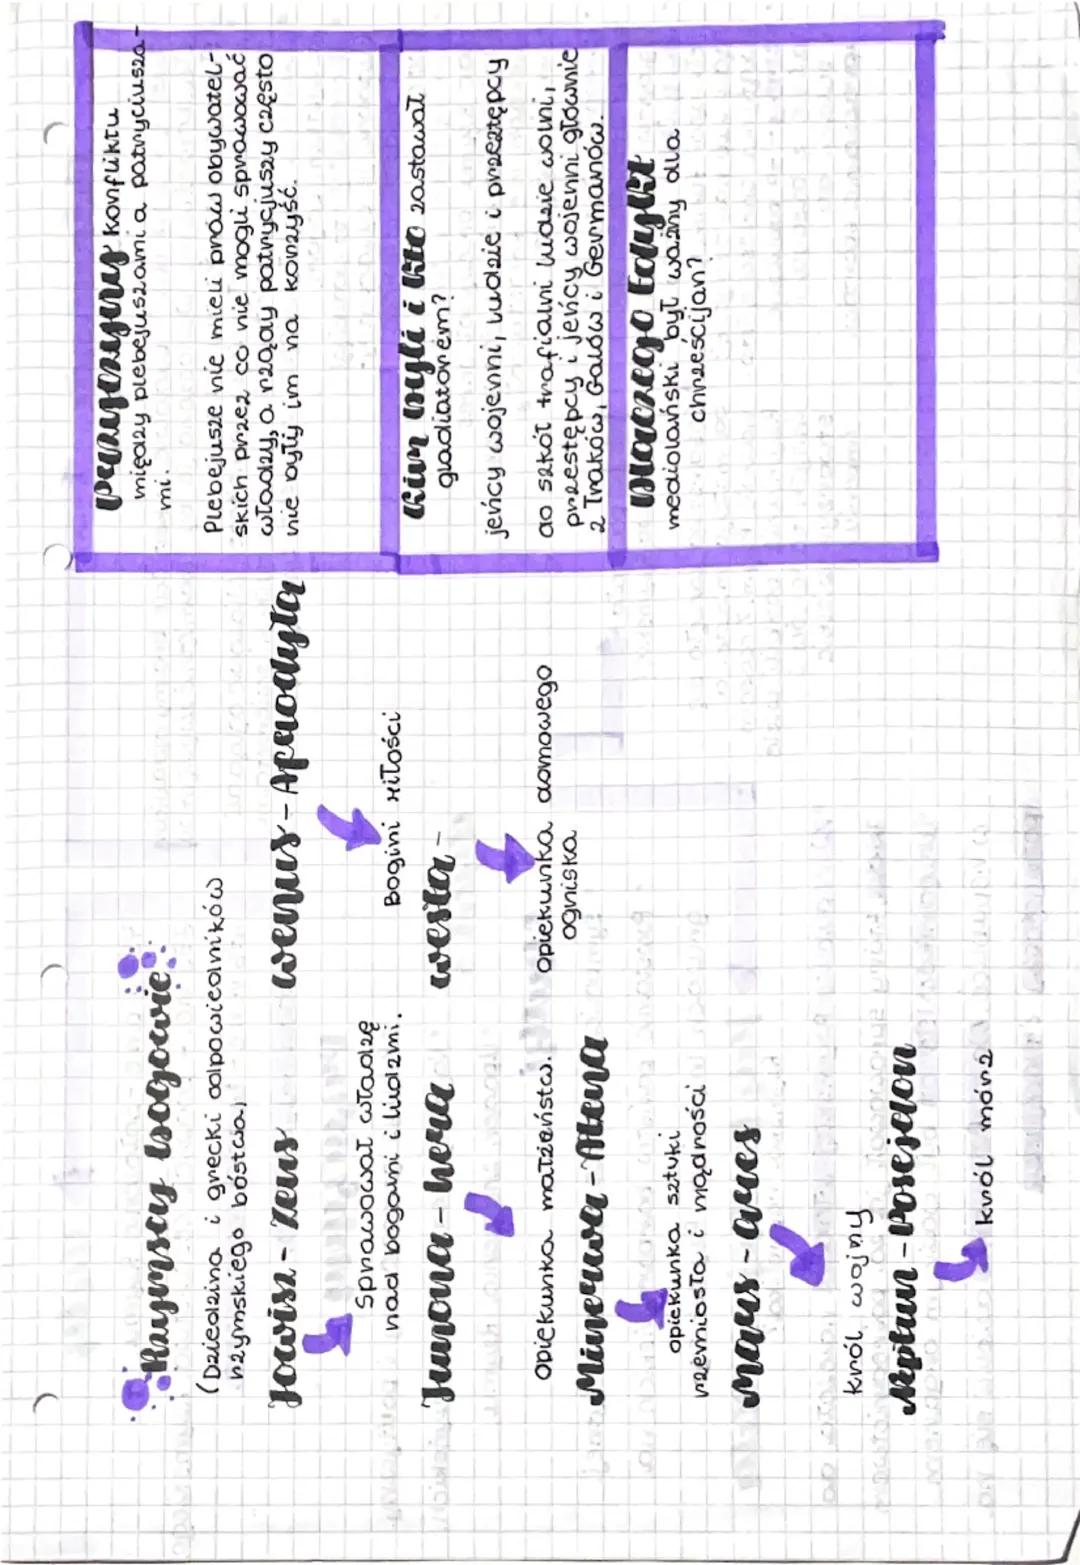 Rzymscy bogowie
(Dziedzina i grecki odpowiednik
rzymskiego bóstwa)
Jowisz - Zeus
Sprawował władzę
nad bogami i ludźmi.
Junona - hera
Opiekunka małżeństw.
Minerwa - Atena
opiekunka sztuki
rzemiosła i mądrości
Mars - ares
król wojny
Neptun - Posejdon
król mórz
wenus - Afrodyta
Bogini Miłości
westa -
opiekunka domowego
ogniska
Przyczyny konfliktu
między plebejuszami a patrycjusza-
mi.
Plebejusze nie mieli praw obywatel-
skich przez co nie mogli sprawować
władzy, a rządy patrycjuszy często
nie były im na korzyść.
Kim byli i kto zastawał
gladiatorem?
jeńcy wojenni, ludzie i przestępcy
do szkół trafialni ludzie wolni,
przestępcy i jeńcy wojenni głównie
z Traków, Galów i Germanów.
Dlaczego Edykt
mediolański był ważny dla
chrześcijan?